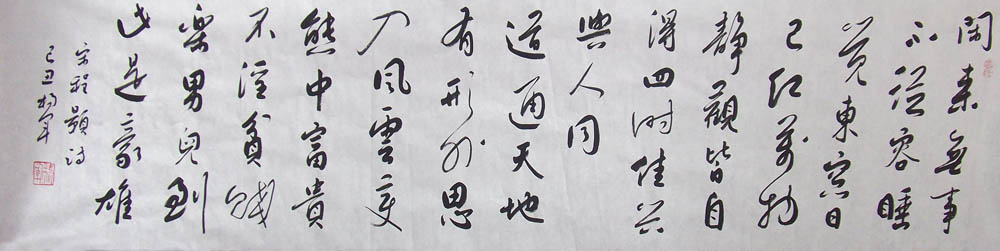 閑來無事
不從容睡
覺東窗日
已紅萬物
靜觀皆自
得四時佳興
與人同
道通天地
有形外思
入風雲變
態中富貴
不淫貧賤
樂男兒到
此是豪雄
宋程顥詩
己丑